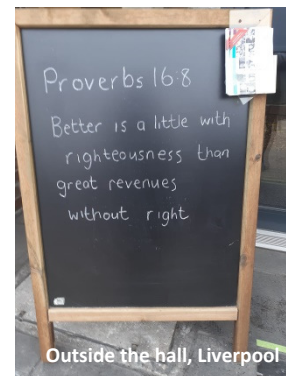 Proverbs 16:8
Better is a little with
righteousness than
great revenues
without right
Outside the hall, Liverpool